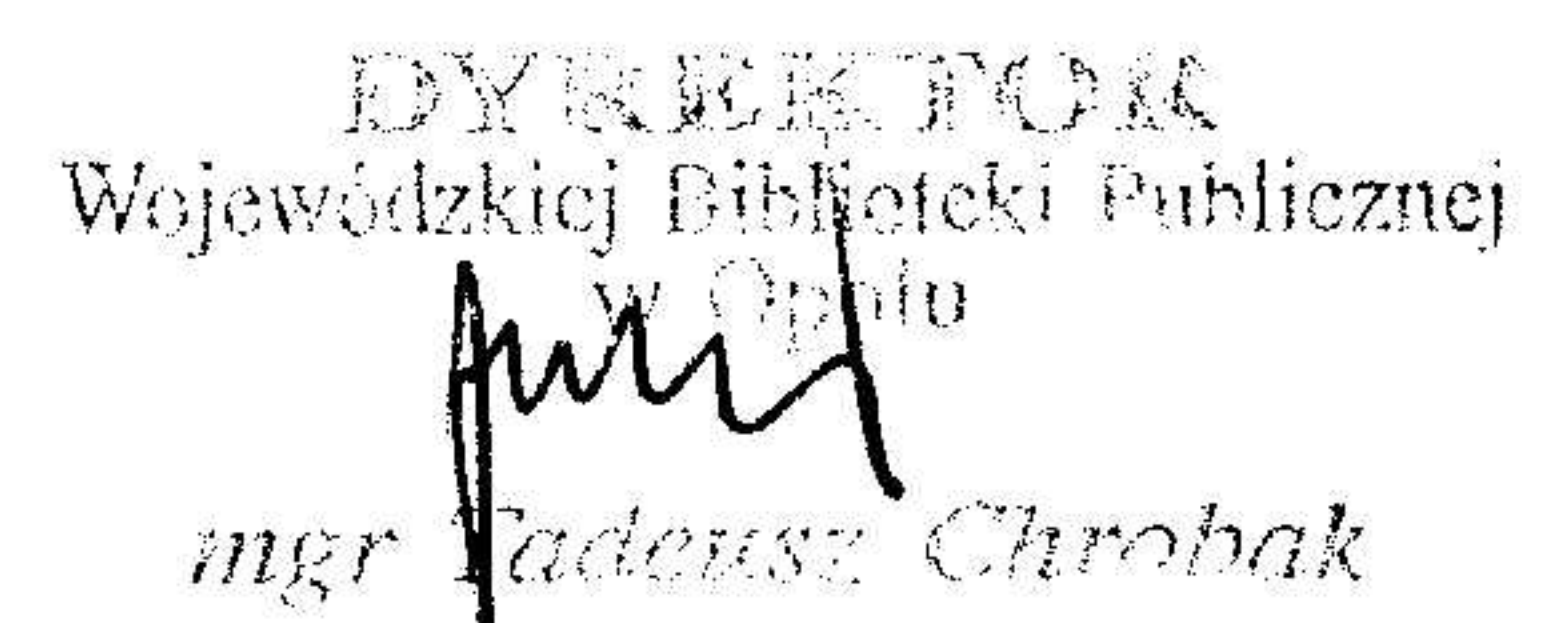 DYREKTOR
Wojewódzkiej Biblioteki Publicznej
w Opolu
mgr Tadeusz Chrobak